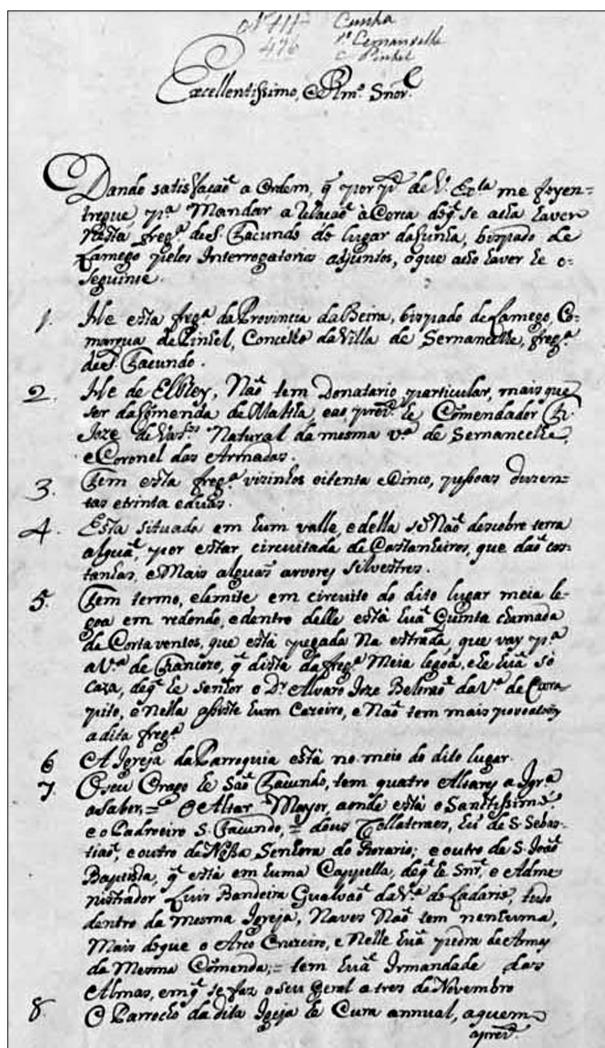 nº 711 Cunha
476 Cernancelhe
c Pinhel
Excellentissimo, e Rmº Snor.
Dando satisfacaõ a Ordem, q̃ por p.te de V. Exc.ia me foy en-
tregue, p.ª Mandar a relacaõ à Cerca de q̃ se acha haver
nesta freg.ª de S. Facundo do lugar da Cunha, bispado de
Lamego pelos Interrogatorios adjuntos, o que acho haver he o-
seguinte.
1. He esta freg.ª da Provincia da Beira, bispado de Lamego, Co-
marqua de Pinhel, Concelho da Villa de Sernancelhe, freg.ª
de S. Facundo.
2. He de ElRey, Naõ tem Donatario particular, mais que
ser da Comenda de Malta, e ao prez.te he Comendador Fr.
Joze de Vas.os Natural da mesma v.ª de Sernancelhe,
e Coronel das Armadas.
3. Tem esta freg.ª vizinhos oitenta e Cinco, pessoas duzen-
tas e trinta e duas.
4. Esta situada em hum valle, e della se Naõ descobre terra
alguã, por estar circuitada de Castanheiros, que daõ cas-
tanhas, e Mais alguãs arvores silvestres.
5. Tem termo, e lemite em circuito do dito lugar meia le-
goa em redondo, e dentro delle está huã Quinta chamada
de Cortaventos, que está pegada Na estrada, que vay p.ª
a V.ª de Fonte Arcada, q̃ dista da freg.ª Meia legoa, e he huã só
caza, de q̃ he senhor o D.or Alvaro Joze Beltraõ da V.ª de Cara-
pito, e Nella assiste hum Cazeiro, e Naõ tem mais povoaçoẽs
a dita freg.ª
6 A Igreja da Parroquia está no meio do dito lugar.
7. O seu Orago he Saõ Facundo, tem quatro Altares a Igr.ª
a saber, = O Altar Mayor, aonde está o Santissimo,
e o Padroeiro S. Facundo, = dous Collateraes, hũ de S. Sebas-
tiaõ, e outro de Nossa Senhora do Rozario; e outro de S. Joaõ
Baptista, q̃ está em huma Cappella, de q̃ he Snr. e Adme
nistrador Luis Bandeira Gualvaõ da V.ª de Ladario, tudo
dentro da mesma Igreja, Naves Naõ tem nenhuma,
Mais do que o Arco Cruzeiro, e Nelle huã pedra de Armas
da Mesma Comenda; = tem huã Irmandade das
Almas, em q̃ se faz o seu geral a tres de Novembro
8. O Parrocho da dita Igreja he Cura annual, a quem
aprez.